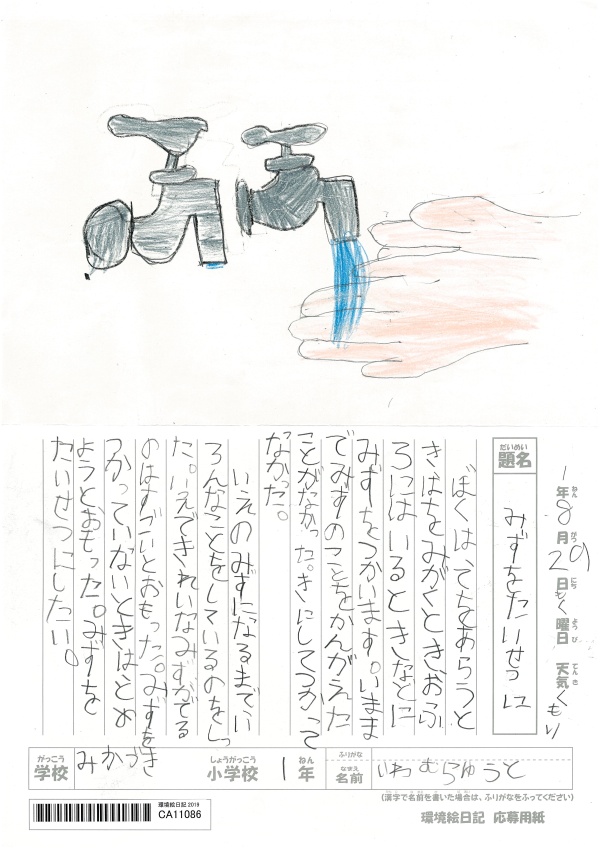 1年8月29日もく曜日 天気くもり
ねん がつ にち よう び てんき
だいめい
題名 みずをたいせつに
ぼくは、てをあらうと
きはをみがくときおふ
ろにはいるときなどに
みずをつかいます。いまま
でみずのことをかんがえた
ことがなかった。きにしてつかって
なかった。
いえのみずになるまでい
ろんなことをしているのをしっ
た。いえできれいなみずがでる
のはすごいとおもった。みずを
つかっていないときはとめ
ようとおもった。みずを
たいせつにしたい。
がっこう しょうがっこう ねん ふりがな
学校 みかづき 小学校 1年
なまえ
名前 いわむらゆうと
(漢字で名前を書いた場合は、ふりがなをふってください)
環境絵日記 応募用紙
環境絵日記 2019
CA11086